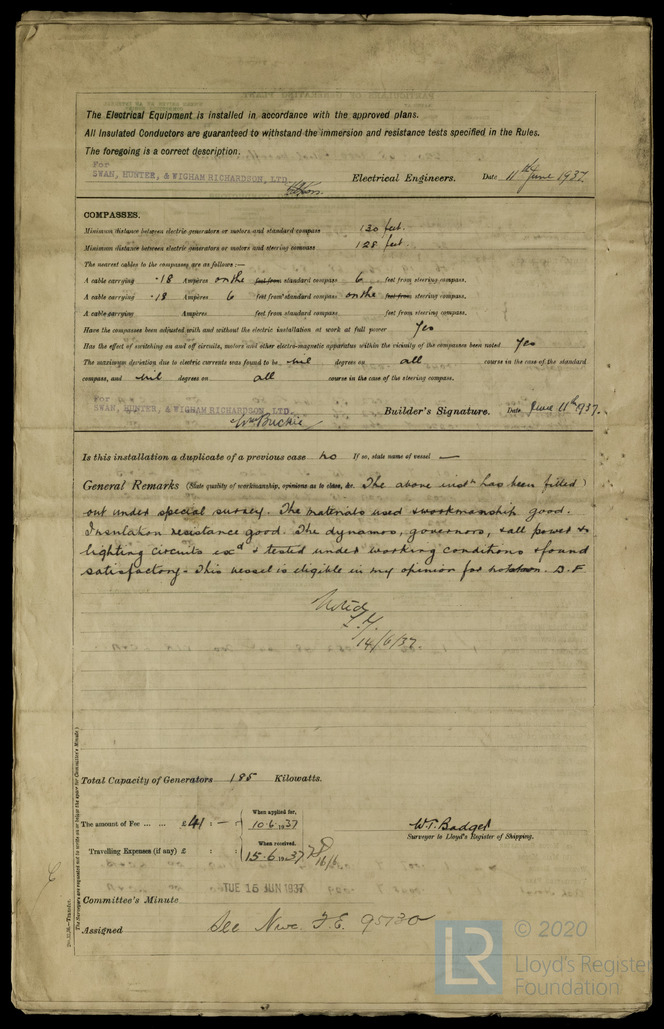 The Electrical Equipment is installed in accordance with the approved plans.
All Insulated Conductors are guaranteed to withstand the immersion and resistance tests specified in the Rules.
The foregoing is a correct description.
For
SWAN, HUNTER, & WIGHAM RICHARDSON, LTD. Electrical Engineers. Date 11th June 1937.
COMPASSES.
Minimum distance between electric generators or motors and standard compass 130 feet.
Minimum distance between electric generators or motors and steering compass 128 feet.
The nearest cables to the compasses are as follows:—
A cable carrying .18 Ampères on the feet from standard compass 6 feet from steering compass.
A cable carrying .18 Ampères 6 feet from standard compass on the feet from steering compass.
A cable carrying Ampères feet from standard compass feet from steering compass.
Have the compasses been adjusted with and without the electric installation at work at full power Yes
Has the effect of switching on and off circuits, motors and other electro-magnetic apparatus within the vicinity of the compasses been noted Yes
The maximum deviation due to electric currents was found to be nil degrees on all course in the case of the standard
compass, and nil degrees on all course in the case of the steering compass.
For
SWAN, HUNTER, & WIGHAM RICHARDSON, LTD.
Wm Buckie Builder's Signature. Date June 11th 1937.
Is this installation a duplicate of a previous case no If so, state name of vessel —
General Remarks (State quality of workmanship, opinions as to class, &c. The above instn has been fitted)
out under special survey. The materials used & workmanship good.
Insulation resistance good. The dynamos, governors, & all power &
lighting circuits exd & tested under working conditions & found
satisfactory. This vessel is eligible in my opinion for notation. D.F
Noted
14/6/37.
Total Capacity of Generators 185 Kilowatts.
The amount of Fee ... ... £41 : — : When applied for, 10.6.1937
W.T. Badger
Surveyor to Lloyd's Register of Shipping.
Travelling Expenses (if any) £ : : When received, 15.6.1937 16/6
TUE 15 JUN 1937
Committee's Minute
Assigned See Nwc. F.E. 95730
The Surveyors are requested not to write on or below the space for Committee's Minute.
LR © 2020
Lloyd's Register
Foundation